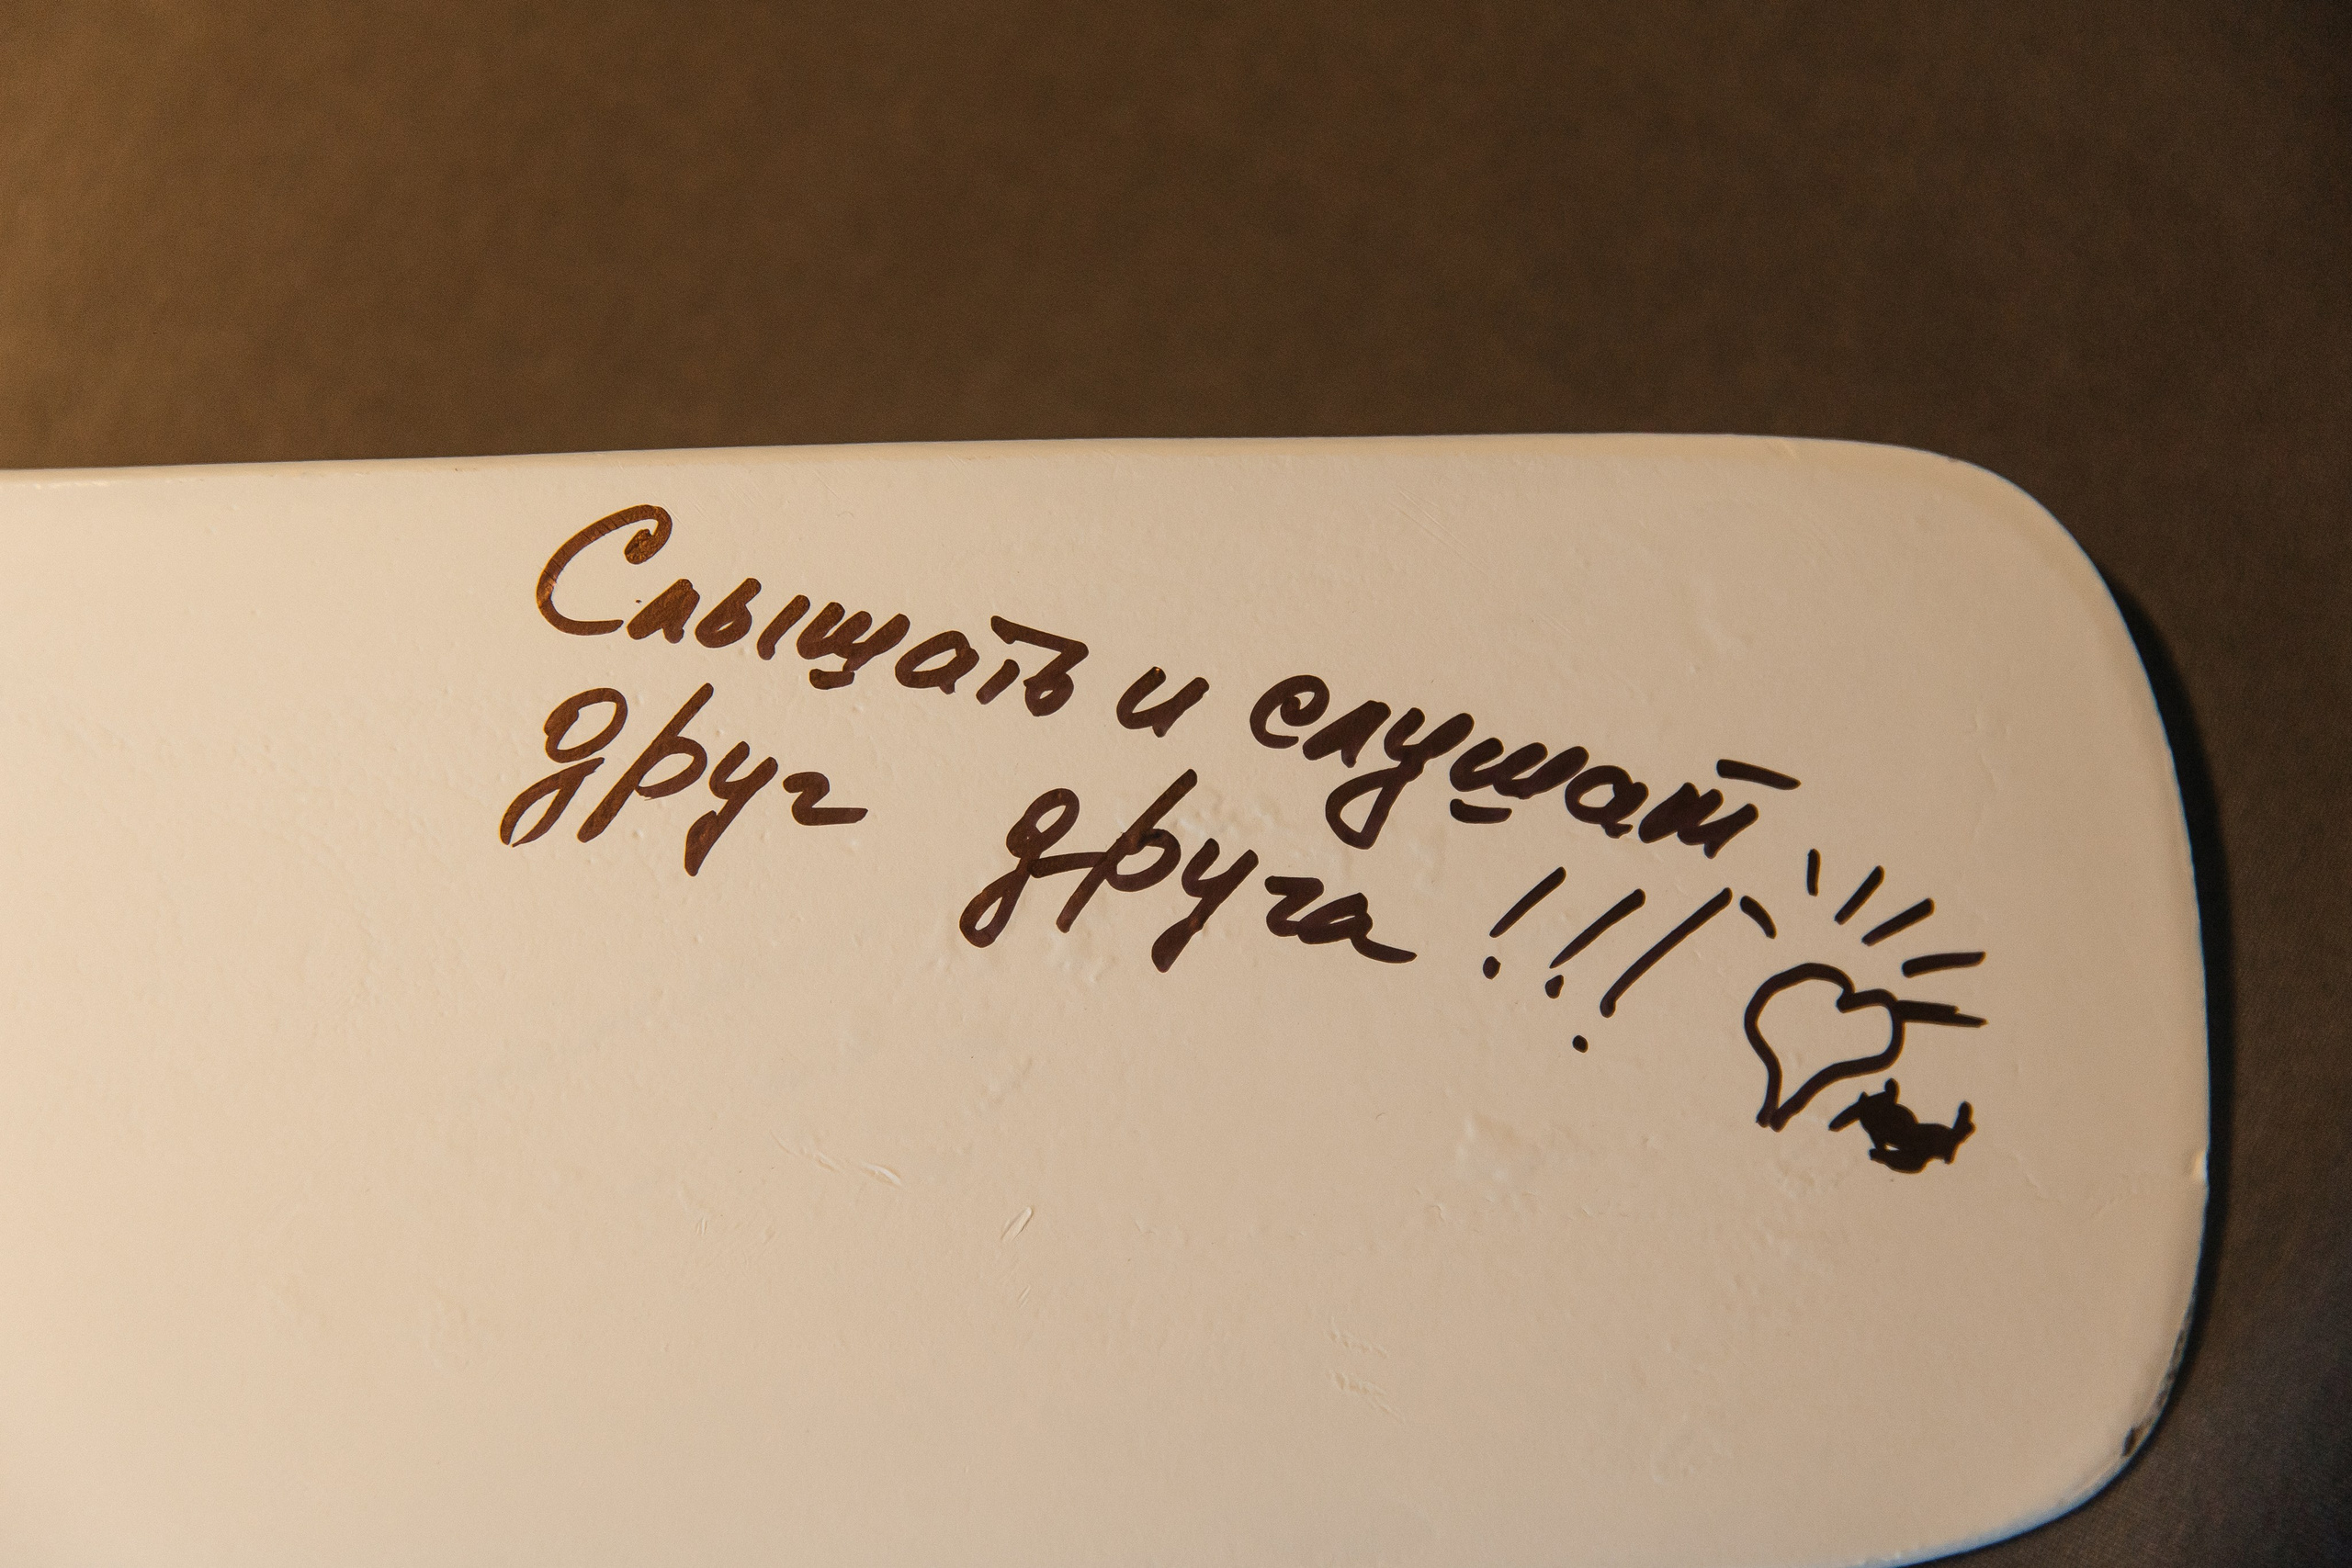 Слышать и слушат
друг друга !!!